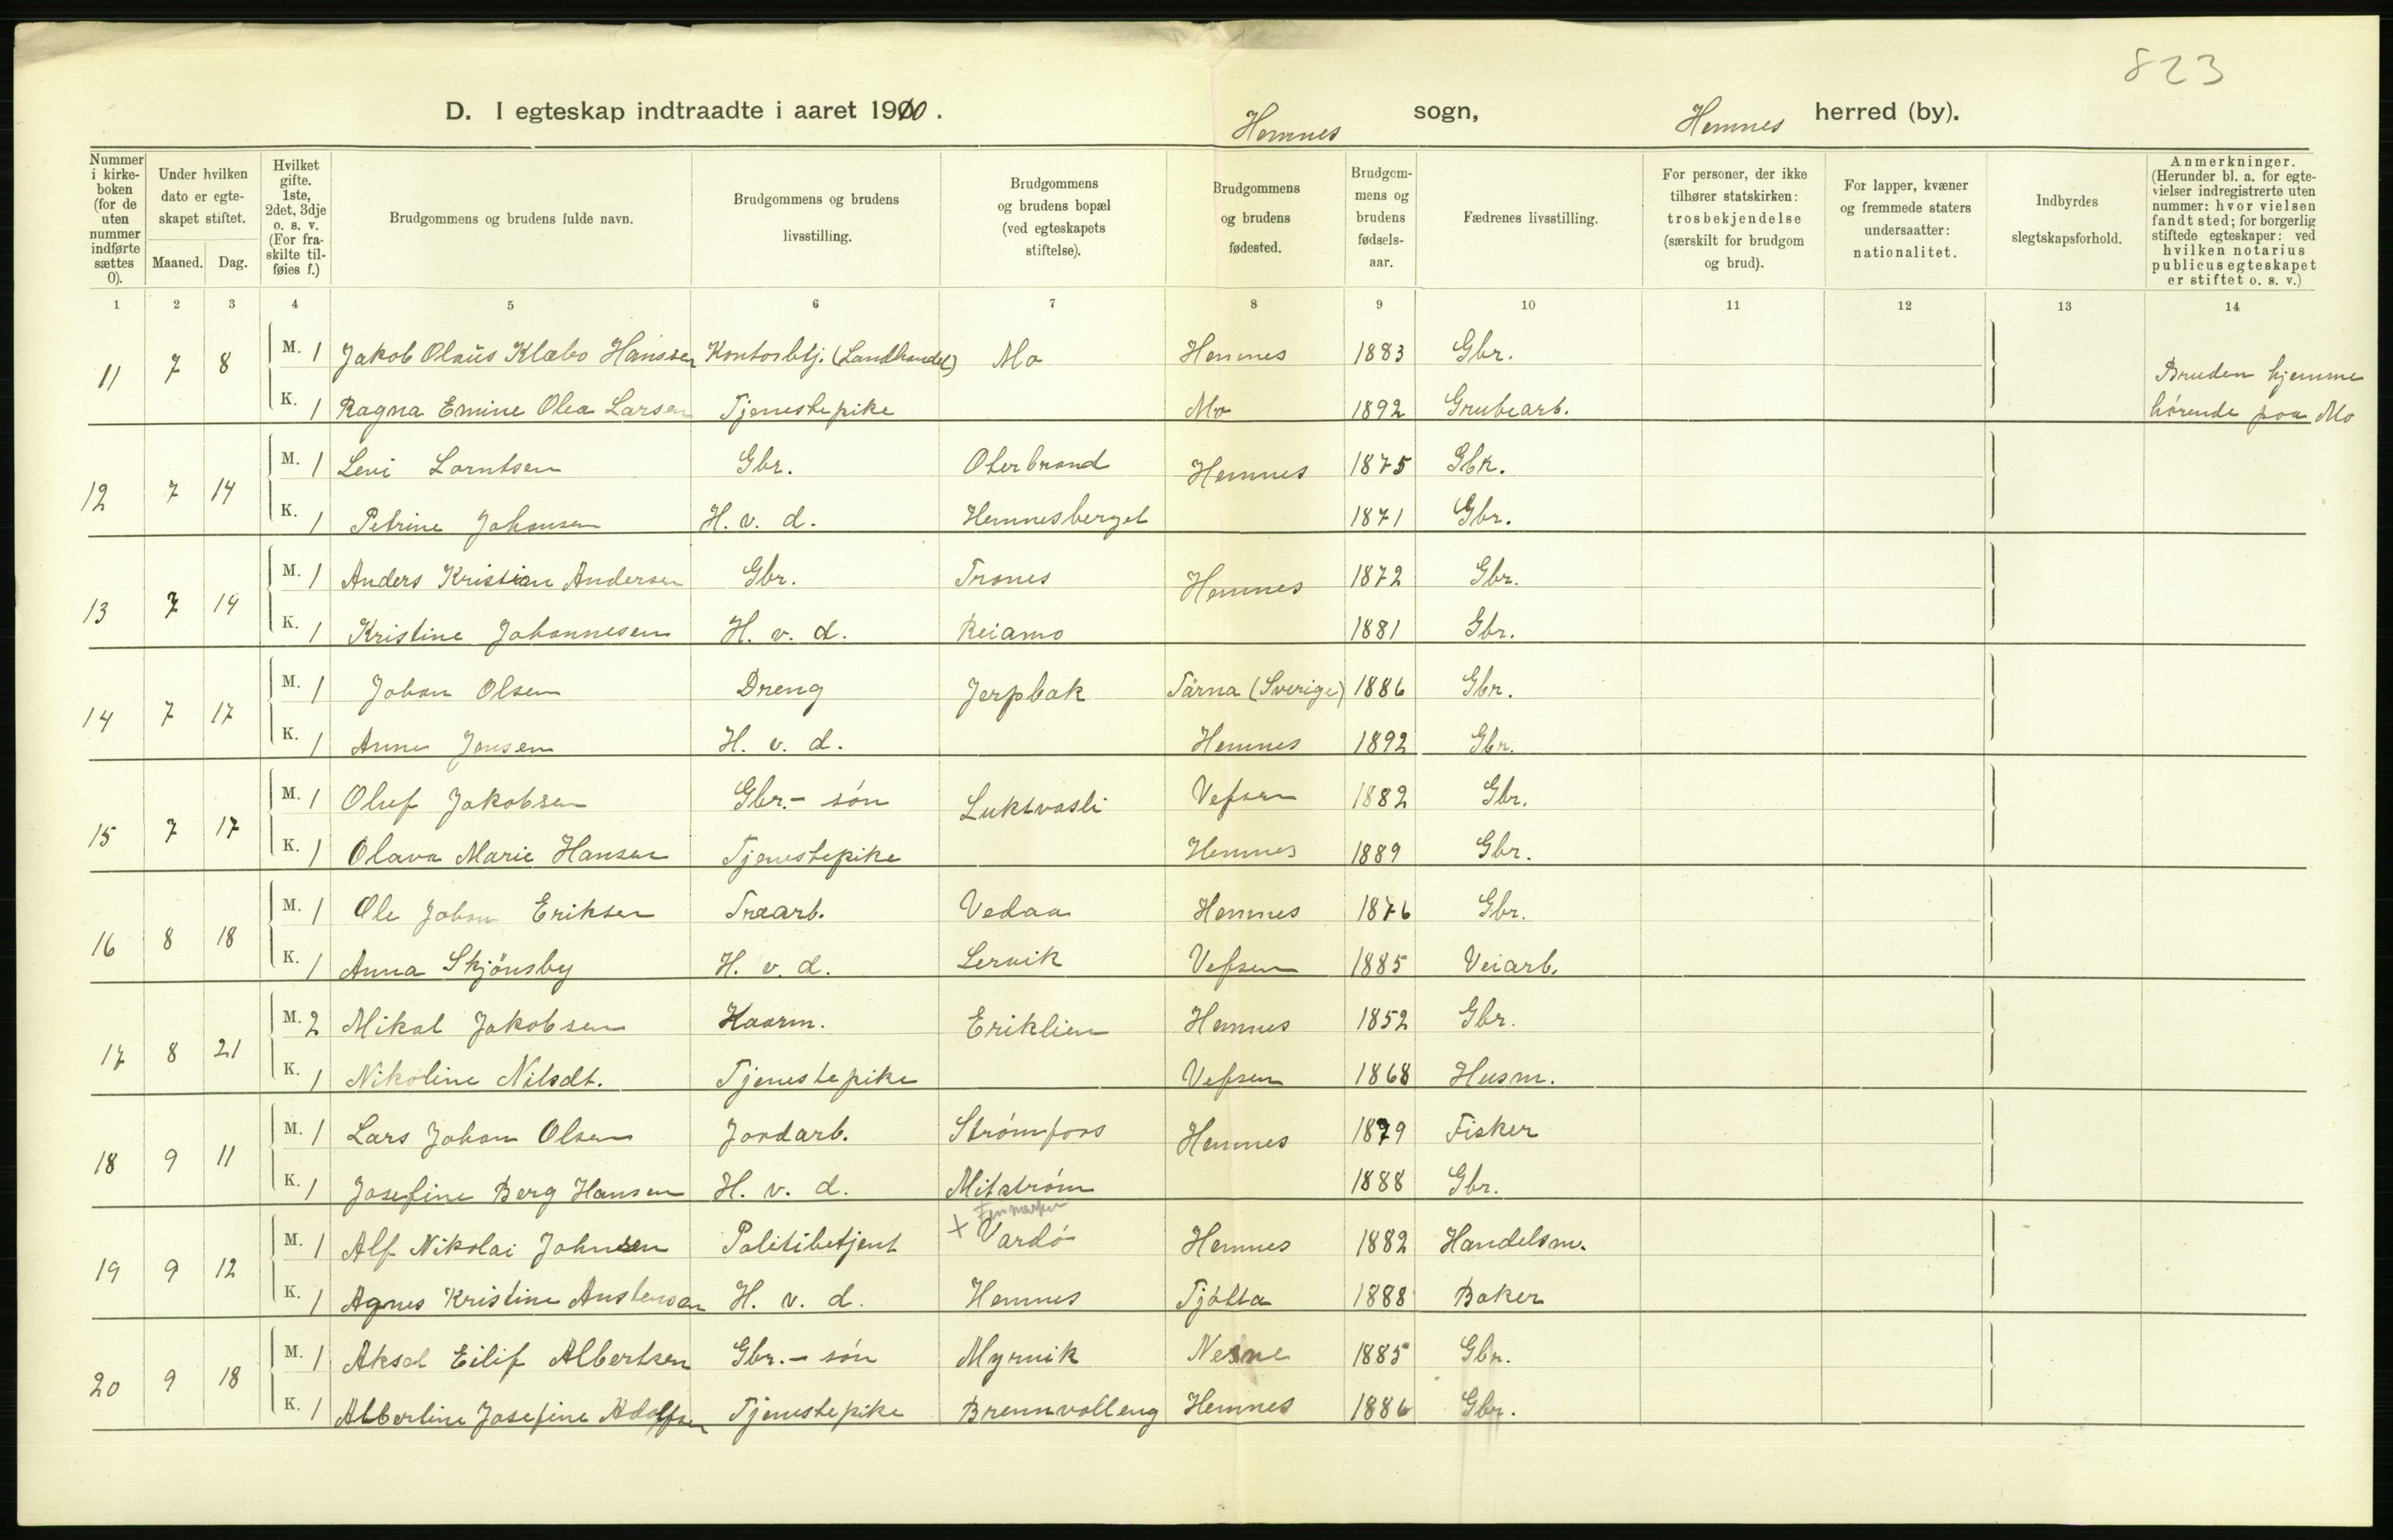 823
D. I egteskap indtraadte i aaret 1910. Hemnes sogn, Hemnes herred (by).
Nummer i kirke-boken (for de uten nummer indførte sættes 0). Under hvilken dato er egte-skapet stiftet. Maaned. Dag. Hvilket gifte. 1ste, 2det, 3dje o. s. v. (For fra-skilte til-føies f.) Brudgommens og brudens fulde navn. Brudgommens og brudens livsstilling. Brudgommens og brudens bopæl (ved egteskapets stiftelse). Brudgommens og brudens fødested. Brudgom-mens og brudens fødsels-aar. Fædrenes livsstilling. For personer, der ikke tilhører statskirken: trosbekjendelse (særskilt for brudgom og brud). For lapper, kvæner og fremmede staters undersaatter: nationalitet. Indbyrdes slegtskapsforhold. Anmerkninger. (Herunder bl. a. for egte-vielser indregistrerte uten nummer: hvor vielsen fandt sted; for borgerlig stiftede egteskaper: ved hvilken notarius publicus egteskapet er stiftet o. s. v.)
1 2 3 4 5 6 7 8 9 10 11 12 13 14
11 7 8 M. 1 Jakob Olaus Klæbo Hanssen Kontorbtj. (Landhandel) Mo Hemnes 1883 Gbr. Bruden hjemme
K. 1 Ragna Emine Olea Larsen Tjenestepike Mo 1892 Grubearb. hørende paa Mo
12 7 14 M. 1 Levi Larntsen Gbr. Oterbrand Hemnes 1875 Gbr.
K. 1 Petrine Johansen H. v. d. Hemnesberget 1871 Gbr.
13 7 14 M. 1 Anders Kristian Andersen Gbr. Trones Hemnes 1872 Gbr.
K. 1 Kristine Johannesen H. v. d. Reiamo 1881 Gbr.
14 7 17 M. 1 Johan Olsen Dreng Jerpbak Tärna (Sverige) 1886 Gbr.
K. 1 Anne Jonsen H. v. d. Hemnes 1892 Gbr.
15 7 17 M. 1 Oluf Jakobsen Gbr.- søn Luktvasli Vefsen 1882 Gbr.
K. 1 Olava Marie Hansen Tjenestepike Hemnes 1889 Gbr.
16 8 18 M. 1 Ole Johan Eriksen Træarb. Vedaa Hemnes 1876 Gbr.
K. 1 Anna Skjønsby H. v. d. Lervik Vefsen 1885 Veiarb.
17 8 21 M. 2 Mikal Jakobsen Kaarm. Eriklien Hemnes 1852 Gbr.
K. 1 Nikoline Nilsdt. Tjenestepike Vefsen 1868 Husm.
18 9 11 M. 1 Lars Johan Olsen Jordarb. Strømfors Hemnes 1879 Fisker
K. 1 Josefine Berg Hansen H. v. d. Mitstrøm 1888 Gbr.
Finmarken
19 9 12 M. 1 Alf Nikolai Johnsen Politibetjent + Vardø Hemnes 1882 Handelsm.
K. 1 Agnes Kristine Austensen H. v. d. Hemnes Tjøtta 1888 Baker
20 9 18 M. 1 Aksel Eilif Albertsen Gbr.- søn Myrvik Nesne 1885 Gbr.
K. 1 Albertine Josefine Adolfsen Tjenestepike Brennvolleng Hemnes 1886 Gbr.